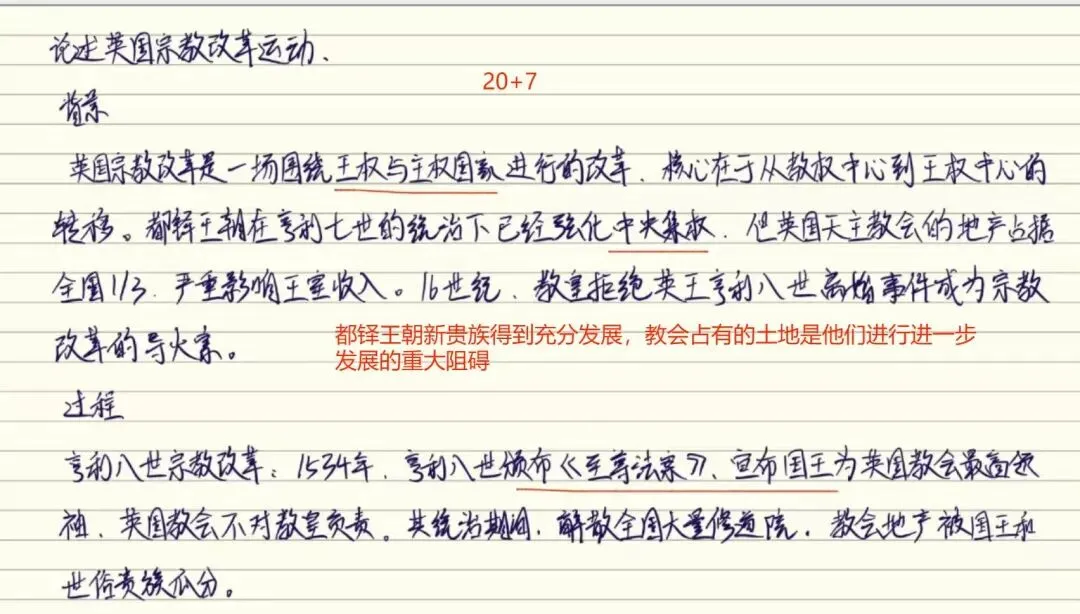 论述英国宗教改革运动、
20+7
背景
英国宗教改革是一场围绕王权与主权国家进行的改革、核心在于从教权中心到王权中心的
转移。都铎王朝在亨利七世的统治下已经强化中央集权、但英国天主教会的地产占据
全国1/3、严重影响王室收入。16世纪、教皇拒绝英王亨利八世离婚事件成为宗教
改革的导火索。
都铎王朝新贵族得到充分发展，教会占有的土地是他们进行进一步
发展的重大阻碍
过程
亨利八世宗教改革：1534年、亨利八世颁布《至尊法案》、宣布国王为英国教会最高领
袖、英国教会不对教皇负责。其统治期间、解散全国大量修道院、教会地产被国王和
世俗贵族瓜分。